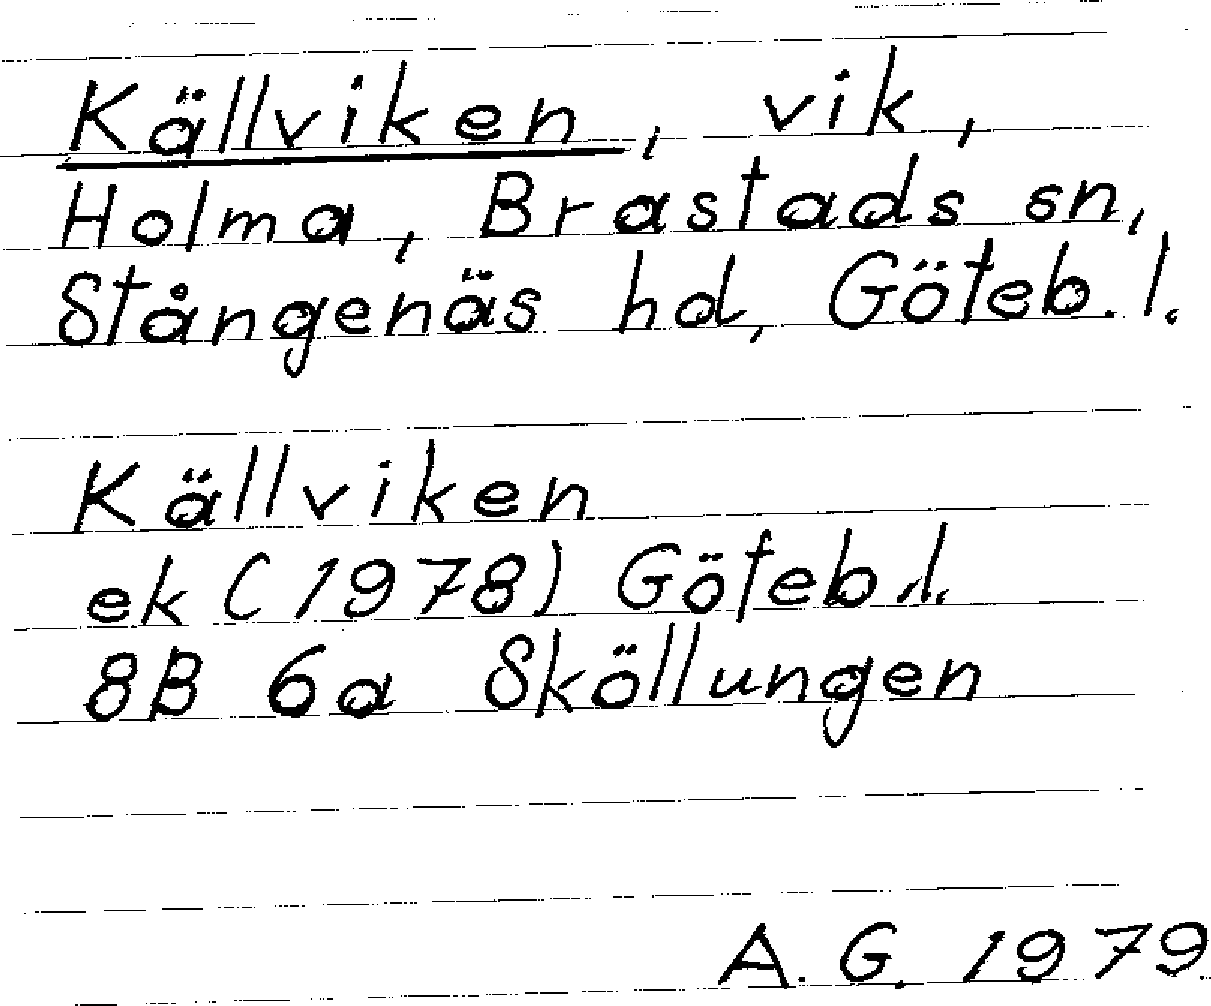 Källviken, vik,
Holma, Brastads sn,
Stångenäs hd, Göteb. l.
Källviken
ek (1978) Göteb. l.
8B 6a Sköllungen
A. G. 1979